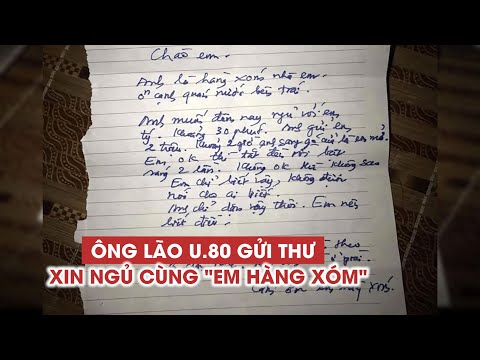 Chào em.
Anh là hàng xóm nhà em.
ở cạnh quán nước bên trái.
Anh muốn đêm nay ngủ với em
tý. Khoảng 30 phút. Anh gửi em
2 triệu. Khoảng 2 giờ anh sang gõ cửa là em mở.
Em ok thì tắt đèn rồi bật
sáng 2 lần. Không ok thì không sao
Em chỉ biết vậy, không
nói cho ai biết.
Anh chỉ vậy thôi. Em
biết điều.
theo
ÔNG LÃO U.80 GỬI THƯ
XIN NGỦ CÙNG "EM HÀNG XÓM"
xóm.